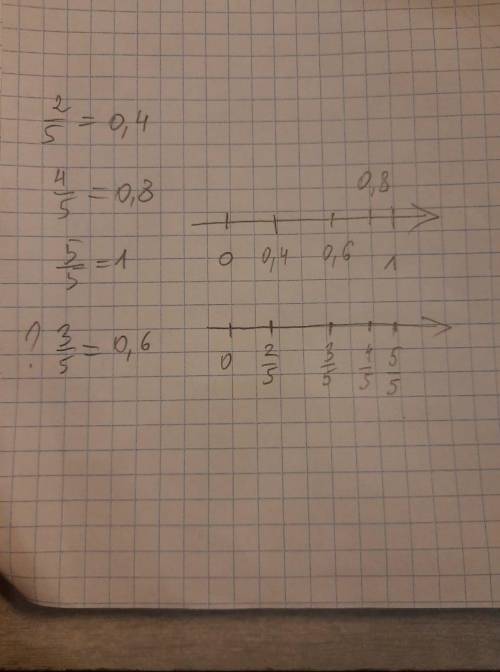 2/5 = 0,4
4/5 = 0,8
5/5 = 1
? 3/5 = 0,6
0,8
0 0,4 0,6 1
0 2/5 3/5 4/5 5/5